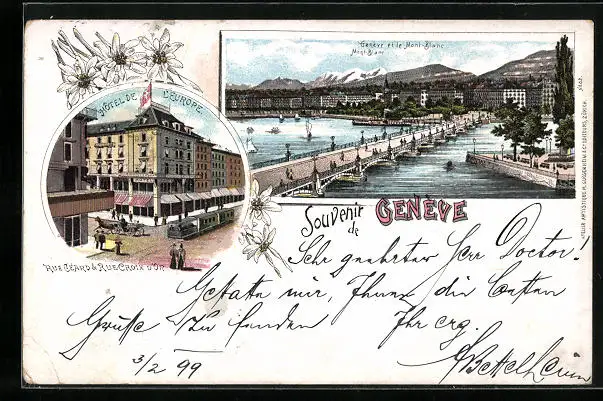 Genève et le Mont-Blanc
Mont-Blanc
HÔTEL DE L'EUROPE
RUE CÉARD & RUE CROIX D'OR
Souvenir
de
GENÈVE
Sehr geehrter Herr Doctor!
Gestatte mir, Ihnen die besten
Grüße zu senden
Ihr erg.
Bettelheim
3/2 99